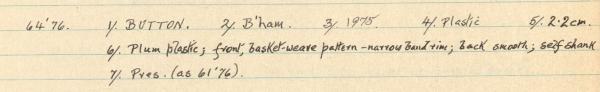 64'76. 1/. BUTTON. 2/. B'ham. 3/. 1975. 4/. Plastic 5/. 2·2cm.
6/. Plum plastic; front, basket-weave pattern - narrow band rim; back smooth; self shank
7/. Pres. (as 61'76).